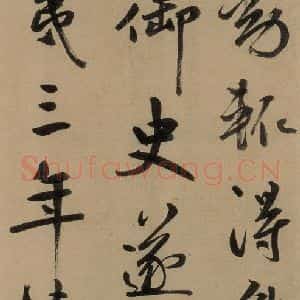 輒得
御史遂
三年
Shufawang.CN